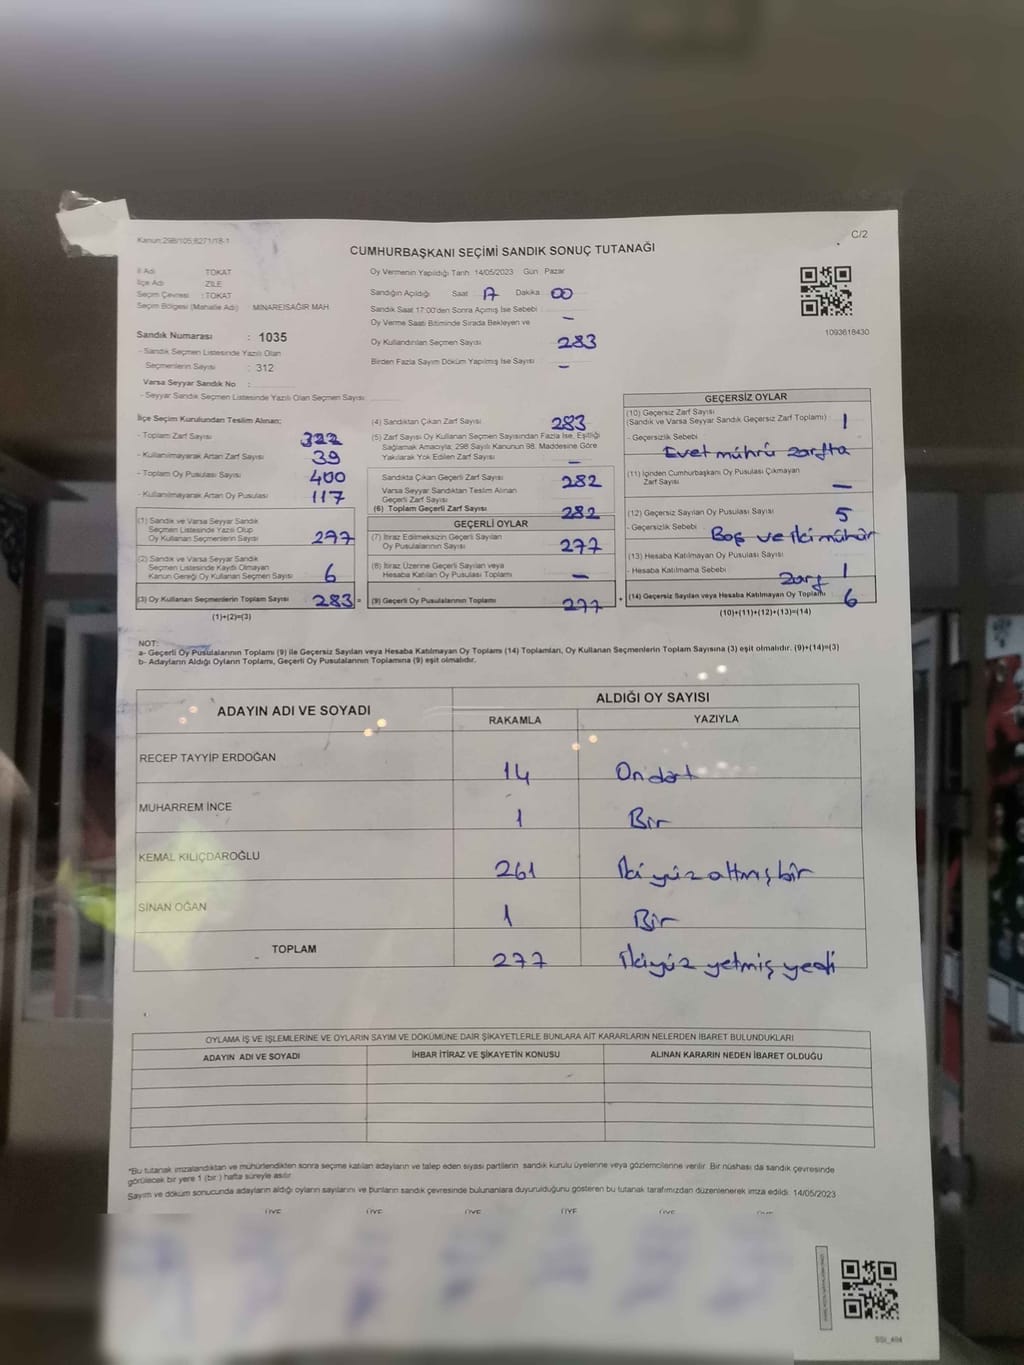 Kanun:298/105;6271/18-1
C/2
CUMHURBAŞKANI SEÇİMİ SANDIK SONUÇ TUTANAĞI
İl Adı TOKAT
İlçe Adı ZİLE
Seçim Çevresi : TOKAT
Seçim Bölgesi (Mahalle Adı) MİNAREİSAĞİR MAH
Sandık Numarası : 1035
- Sandık Seçmen Listesinde Yazılı Olan
Seçmenlerin Sayısı : 312
Varsa Seyyar Sandık No :
- Seyyar Sandık Seçmen Listesinde Yazılı Olan Seçmen Sayısı
Oy Vermenin Yapıldığı Tarih 14/05/2023 Gün Pazar
Sandığın Açıldığı Saat 17 Dakika 00
Sandık Saat 17:00'den Sonra Açılmış İse Sebebi :
Oy Verme Saati Bitiminde Sırada Bekleyen ve –
Oy Kullandırılan Seçmen Sayısı 283
Birden Fazla Sayım Döküm Yapılmış İse Sayısı –
1093618430
İlçe Seçim Kurulundan Teslim Alınan;
- Toplam Zarf Sayısı 322
- Kullanılmayarak Artan Zarf Sayısı 39
- Toplam Oy Pusulası Sayısı 400
- Kullanılmayarak Artan Oy Pusulası 117
(1) Sandık ve Varsa Seyyar Sandık
Seçmen Listesinde Yazılı Olup
Oy Kullanan Seçmenlerin Sayısı 277
(2) Sandık ve Varsa Seyyar Sandık
Seçmen Listesinde Kaydı Olmayan
Kanun Gereği Oy Kullanan Seçmen Sayısı 6
(3) Oy Kullanan Seçmenlerin Toplam Sayısı 283 =
(1)+(2)=(3)
(4) Sandıktan Çıkan Zarf Sayısı 283
(5) Zarf Sayısı Oy Kullanan Seçmen Sayısından Fazla İse, Eşitliği
Sağlamak Amacıyla; 298 Sayılı Kanunun 98. Maddesine Göre
Yakılarak Yok Edilen Zarf Sayısı –
Sandıkta Çıkan Geçerli Zarf Sayısı 282
Varsa Seyyar Sandıktan Teslim Alınan
Geçerli Zarf Sayısı
(6) Toplam Geçerli Zarf Sayısı 282
GEÇERLİ OYLAR
(7) İtiraz Edilmeksizin Geçerli Sayılan
Oy Pusulalarının Sayısı 277
(8) İtiraz Üzerine Geçerli Sayılan veya
Hesaba Katılan Oy Pusulası Toplamı –
(9) Geçerli Oy Pusulalarının Toplamı 277 +
GEÇERSİZ OYLAR
(10) Geçersiz Zarf Sayısı
(Sandık ve Varsa Seyyar Sandık Geçersiz Zarf Toplamı) 1
- Geçersizlik Sebebi
Evet mührü zarfta
(11) İçinden Cumhurbaşkanı Oy Pusulası Çıkmayan
Zarf Sayısı –
(12) Geçersiz Sayılan Oy Pusulası Sayısı 5
- Geçersizlik Sebebi Boş ve iki mühür
(13) Hesaba Katılmayan Oy Pusulası Sayısı
- Hesaba Katılmama Sebebi zarf 1
(14) Geçersiz Sayılan veya Hesaba Katılmayan Oy Toplamı 6
(10)+(11)+(12)+(13)=(14)
NOT:
a- Geçerli Oy Pusulalarının Toplamı (9) ile Geçersiz Sayılan veya Hesaba Katılmayan Oy Toplamı (14) Toplamları, Oy Kullanan Seçmenlerin Toplam Sayısına (3) eşit olmalıdır. (9)+(14)=(3)
b- Adayların Aldığı Oyların Toplamı, Geçerli Oy Pusulalarının Toplamına (9) eşit olmalıdır.
ADAYIN ADI VE SOYADI
ALDIĞI OY SAYISI
RAKAMLA YAZIYLA
RECEP TAYYİP ERDOĞAN 14 On dört
MUHARREM İNCE 1 Bir
KEMAL KILIÇDAROĞLU 261 İki yüz altmış bir
SİNAN OĞAN 1 Bir
TOPLAM 277 İkiyüz yetmiş yedi
OYLAMA İŞ VE İŞLEMLERİNE VE OYLARIN SAYIM VE DÖKÜMÜNE DAİR ŞİKAYETLERLE BUNLARA AİT KARARLARIN NELERDEN İBARET BULUNDUKLARI
ADAYIN ADI VE SOYADI İHBAR İTİRAZ VE ŞİKAYETİN KONUSU ALINAN KARARIN NEDEN İBARET OLDUĞU
*Bu tutanak imzalandıktan ve mühürlendikten sonra seçime katılan adayların ve talep eden siyasi partilerin sandık kurulu üyelerine veya gözlemcilerine verilir. Bir nüshası da sandık çevresinde
görülecek bir yere 1 (bir ) hafta süreyle asılır.
Sayım ve döküm sonucunda adayların aldığı oyların sayılarını ve bunların sandık çevresinde bulunanlara duyurulduğunu gösteren bu tutanak tarafımızdan düzenlenerek imza edildi. 14/05/2023
ÜYE ÜYE ÜYE ÜYE ÜYE ÜYE